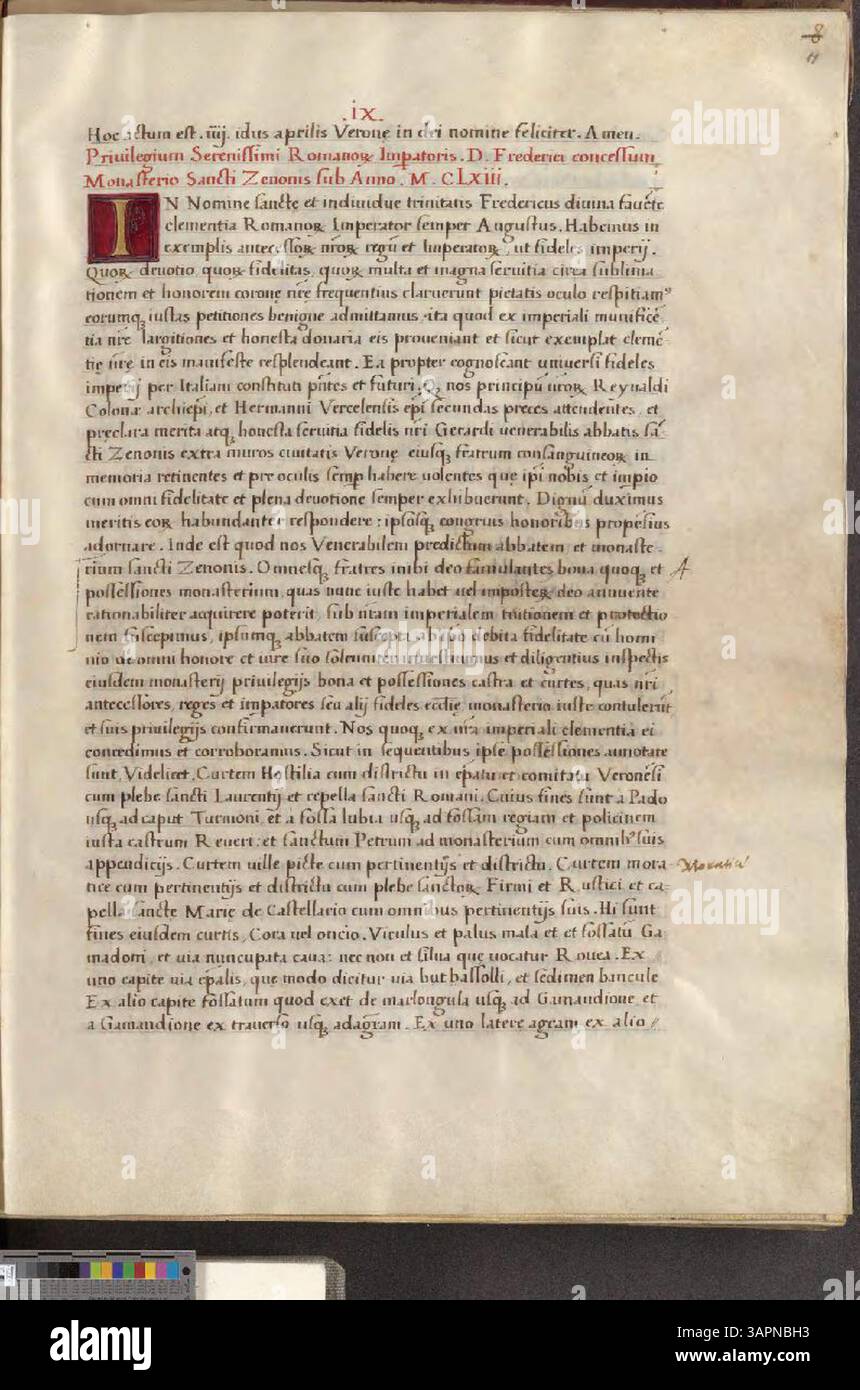 8
11
.ix.
Hoc actum est. iiij. idus aprilis Veronę in dei nomine feliciter. Amen.
Priuilegium Serenissimi Romanoꝝ Impatoris. D. Frederici concessum
Monasterio Sancti Zenonis sub Anno. M. CLxiii.
IN Nomine sanctę et indiuidue trinitatis Fredericus diuina fauēte
clementia Romanoꝝ Imperator semper Augustus. Habemus in
exemplis antecessoꝝ nr̄oꝝ regū et Imperatoꝝ, ut fideles imperij.
Quoꝝ deuotio quoꝝ fidelitas, quoꝝ multa et magna seruitia circa sublima
tionem et honorem coronę nr̄e frequentius claruerunt pietatis oculo respitiamꝰ
eorumqꝫ iustas petitiones benigne admittamus ita quod ex imperiali munificē
tia nr̄e largitiones et honesta donaria eis proueniant et sicut exemplat clemē
tię nr̄e in eis manifeste resplendeant. Ea propter cognoscant uniuersi fideles
imperij per Italiam constituti pñtes et futuri. Qꝫ nos principū nr̄oꝝ Reynaldi
Colonię archiepi, et Hermanni Vercelensis epi secundas preces attendentes, et
preclara merita atqꝫ honesta seruitia fidelis nr̄i Gerardi uenerabilis abbatis sā
cti Zenonis extra muros ciuitatis Veronę eiusqꝫ fratrum consanguineoꝝ in
memoria retinentes et pre oculis semp habere uolentes que ipi nobis et impio
cum omni fidelitate et plena deuotione semper exhibuerunt. Dignū duximus
meritis eoꝝ habundanter respondere: ipsosqꝫ congruis honoribus propesius
adornare. Inde est quod nos Venerabilem predictum abbatem, et monaste-
rium sancti Zenonis. Omnesqꝫ fratres inibi deo famulantes bona quoqꝫ et A
possessiones monasterium, quas nunc iuste habet uel imposteꝝ deo annuente
rationabiliter acquirere poterit, sub nr̄am imperialem tuitionem et protectio
nem suscepimus, ipsumqꝫ abbatem debita fidelitate cū homi
nio de omni honore et iure suo solemniter inuestiuimus et diligentius inspectis
eiusdem monasterij priuilegijs bona et possessiones castra et curtes, quas nr̄i
antecessores, reges et impatores seu alij fideles ecclię, monasterio iuste contulerūt
et suis priuilegijs confirmauerunt. Nos quoqꝫ ex nr̄a imperiali clementia ei
concedimus et corroboramus. Sicut in sequentibus ipse possessiones annotate
sunt, Videlicet, Curtem Hostilia cum districtu in epatu et comitatu Veronēsi
cum plebe sancti Laurentij et capella sancti Romani. Cuius fines sunt a Pado
usqꝫ ad caput Turmoni, et a fossa lubia usqꝫ ad fossam regiam et policinem
iusta castrum Reuert: et sanctum Petrum ad monasterium cum omnibꝰ suis
appendicijs. Curtem uille picte cum pertinentijs et districtu. Curtem mora
tice cum pertinentijs et districtu cum plebe sanctoꝝ Firmi et Rustici et ca-
pella sancte Marię de Castellario cum omnibus pertinentijs suis. Hi sunt
fines eiusdem curtis, Cora uel oncio. Viculus et palus mala et et fossatū Ga
madoni, et uia nuncupata caua: nec non et silua que uocatur Rouea. Ex
uno capite uia epalis, que modo dicitur uia butbassolli, et sedimen bancule
Ex alio capite fossatum quod exet de marlongula usqꝫ ad Gamandione, et
a Gamandione ex trauerso usqꝫ adagram. Ex uno latere ageam ex alio
alamy
Image ID: 3APNBH3
www.alamy.com